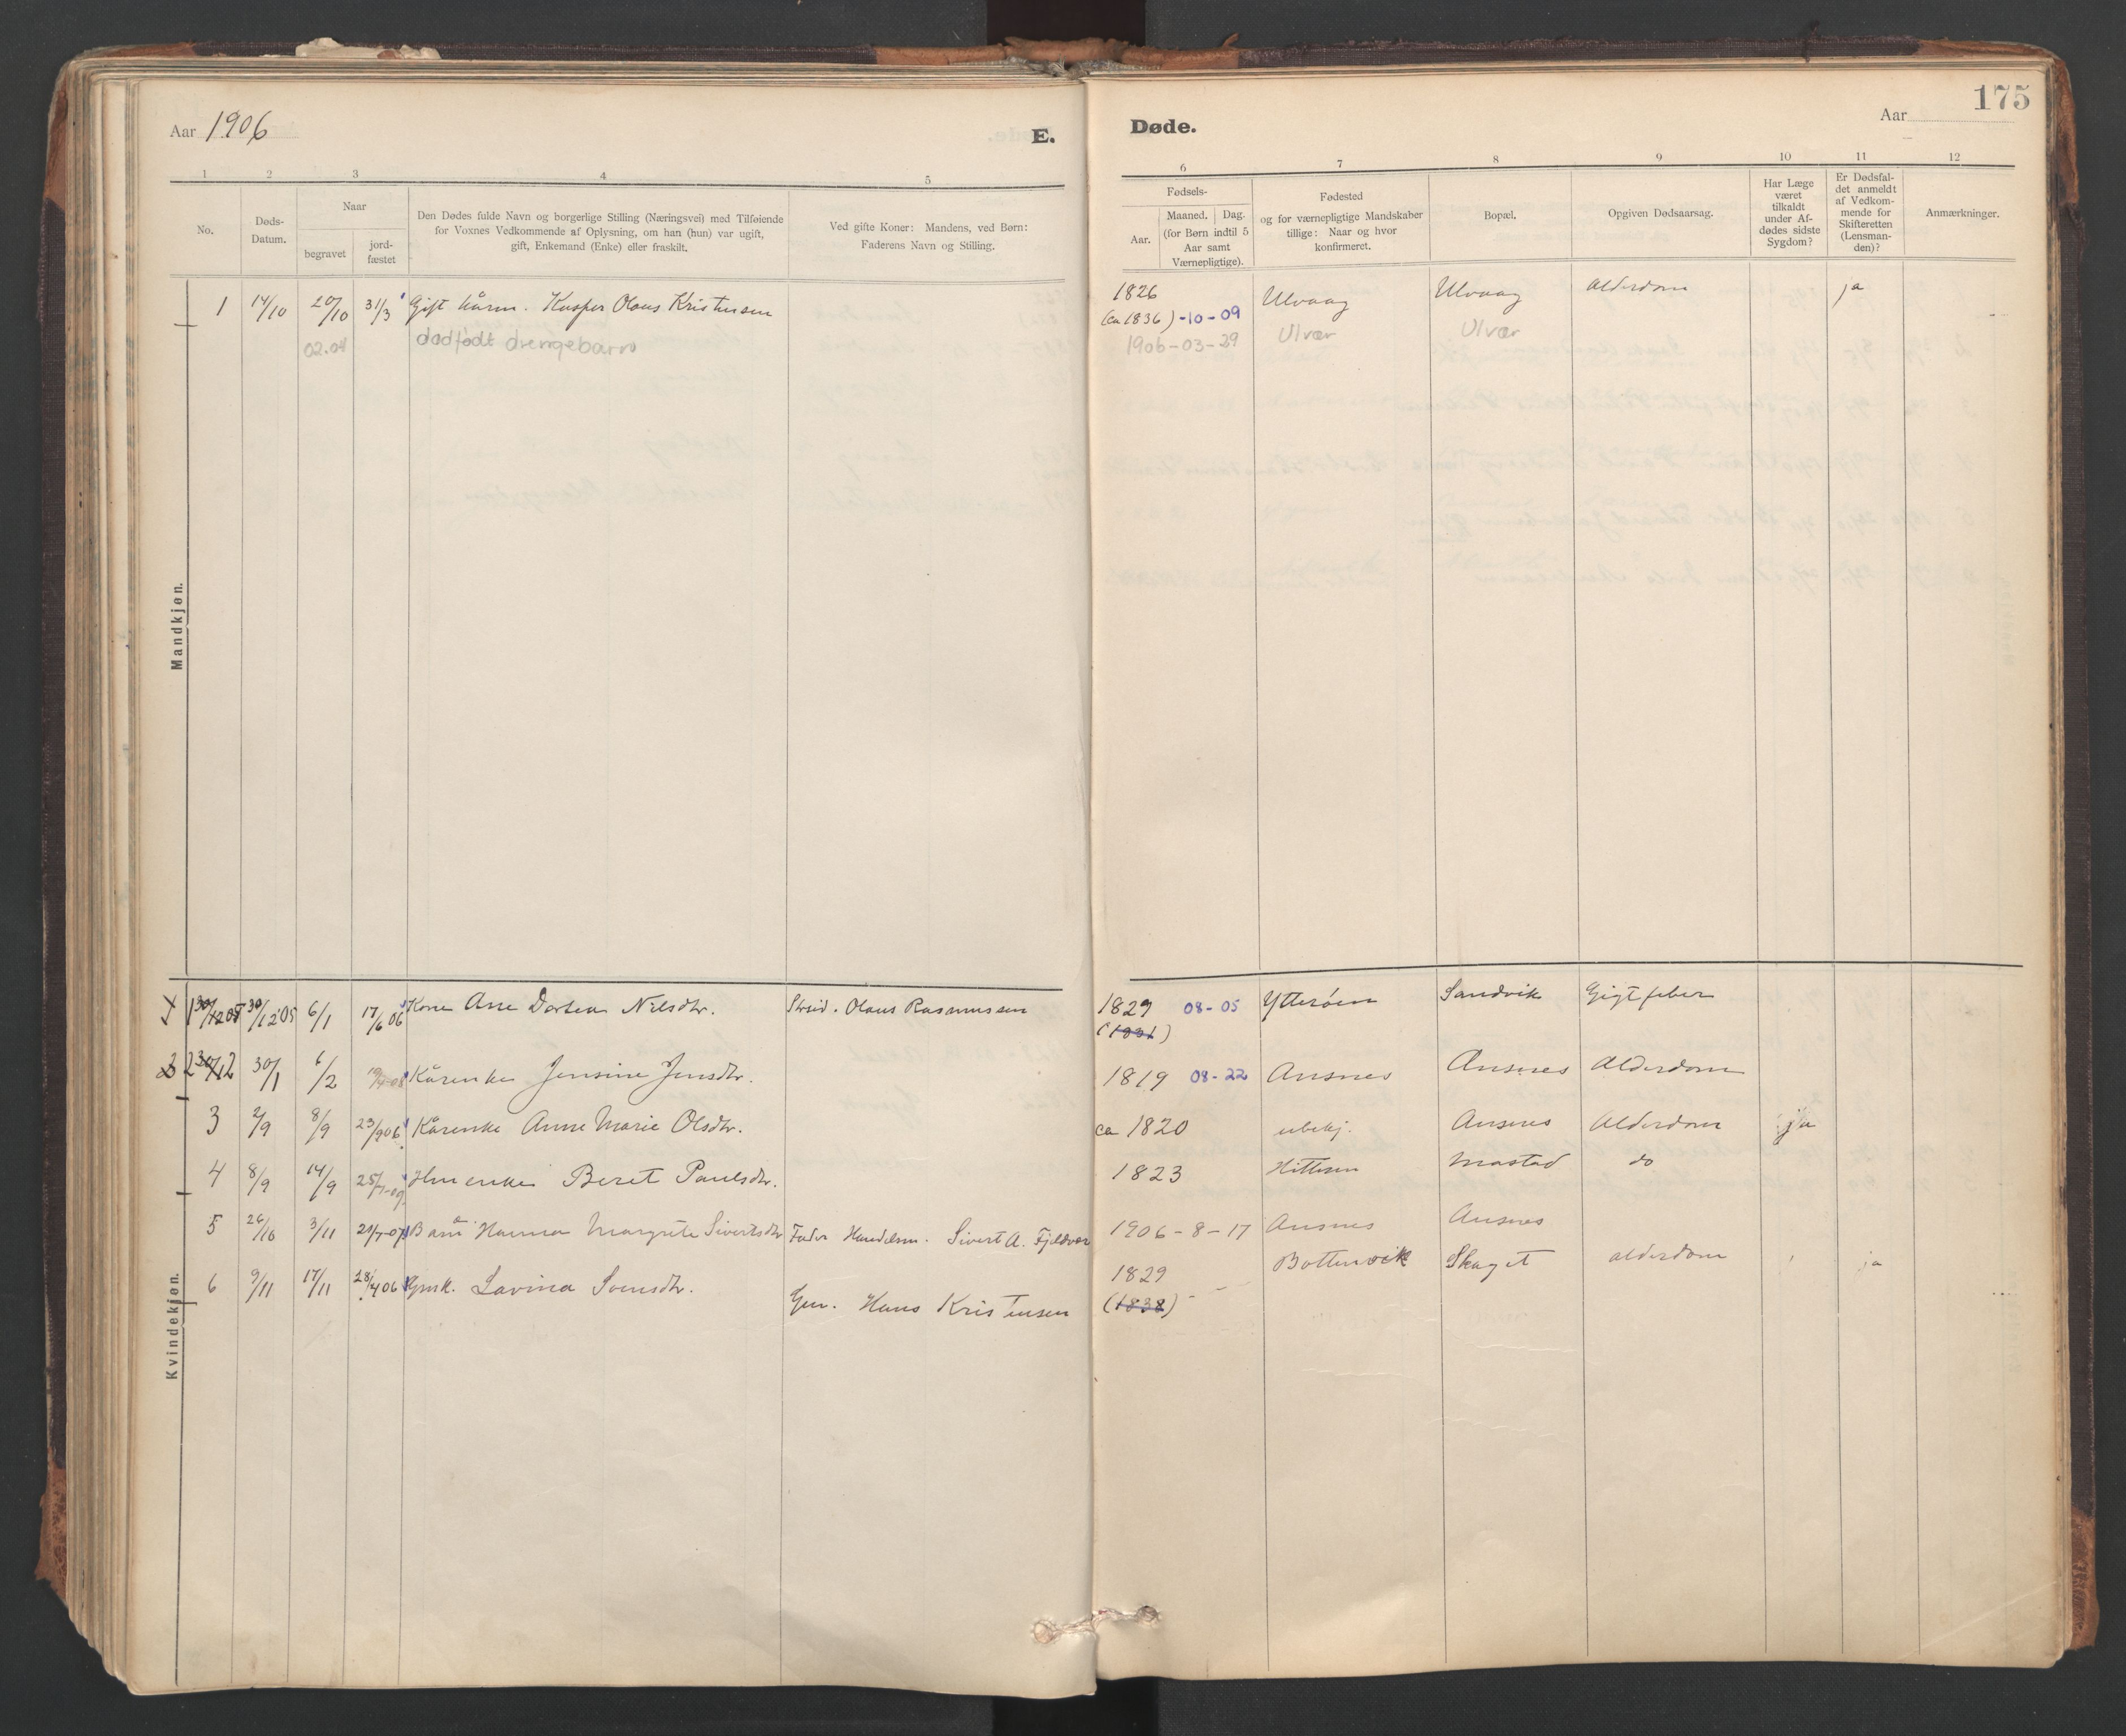 Aar 1906
E.
Døde.
Aar
175
1 2 3 4 5 6 7 8 9 10 11 12
No.
Døds-
Datum.
Naar
begravet
jord-
fæstet
Den Dødes fulde Navn og borgerlige Stilling (Næringsvei) med Tilføiende
for Voxnes Vedkommende af Oplysning, om han (hun) var ugift,
gift, Enkemand (Enke) eller fraskilt.
Ved gifte Koner: Mandens, ved Børn:
Faderens Navn og Stilling.
Fødsels-
Aar.
Maaned. Dag.
(for Børn indtil 5
Aar samt
Værnepligtige).
Fødested
og for værnepligtige Mandskaber
tillige: Naar og hvor
konfirmeret.
Bopæl.
Opgiven Dødsaarsag.
Har Læge
været
tilkaldt
under Af-
dødes sidste
Sygdom?
Er Dødsfal-
det anmeldt
af Vedkom-
mende for
Skifteretten
(Lensman-
den)?
Anmærkninger.
Mandkjøn.
1 14/10 20/10 31/3 Gift kårm. Kasper Olaus Kristensen 1826 Ulvaag Ulvaag Alderdom ja
(ca 1836) -10-09
02.04 dødfødt drengebarn 1906-03-29 Ulvær Ulvær
Kvindekjøn.
1 30/12 05 6/1 17/6 06 Kone Ane Dortea Nilsdtr. Olaus Rasmussen 1829 08-05 Ytterøen Sandvik Gigtfeber
(1831)
2 30/1 6/2 Kårenke Jensine Jensdtr. 1819 08-22 Ansnes Ansnes Alderdom
3 2/9 8/9 23/9 06 Kårenke Anne Marie Olsdtr. ca 1820 ubekj. Ansnes Alderdom ja
4 8/9 14/9 Beret Paulsdtr. 1823 Hitteren Mastad do
5 26/10 3/11 21/7-07 Barn Hanna Margrete Sivertsdtr Fader Handelsm. Sivert A. Fjeldvær 1906-8-17 Ansnes Ansnes
6 9/11 17/11 28/4 06 Gmk. Lavina Svensdtr. Gm. Hans Kristensen 1829 Bottenvik Skaget alderdom ja
(1838)